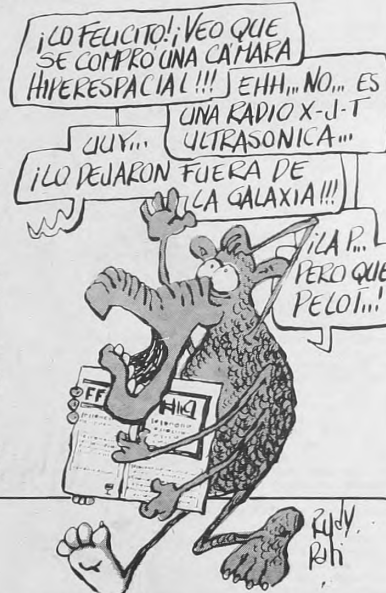 ¡LO FELICITO! ¡VEO QUE
SE COMPRÓ UNA CÁMARA
HIPERESPACIAL!!!
EHH... NO... ES
UNA RADIO X-J-T
ULTRASONICA...
UUY...
¡LO DEJARON FUERA DE
LA GALAXIA!!!
¡LA P...
PERO QUE
PELOT...!
FF
Rudy